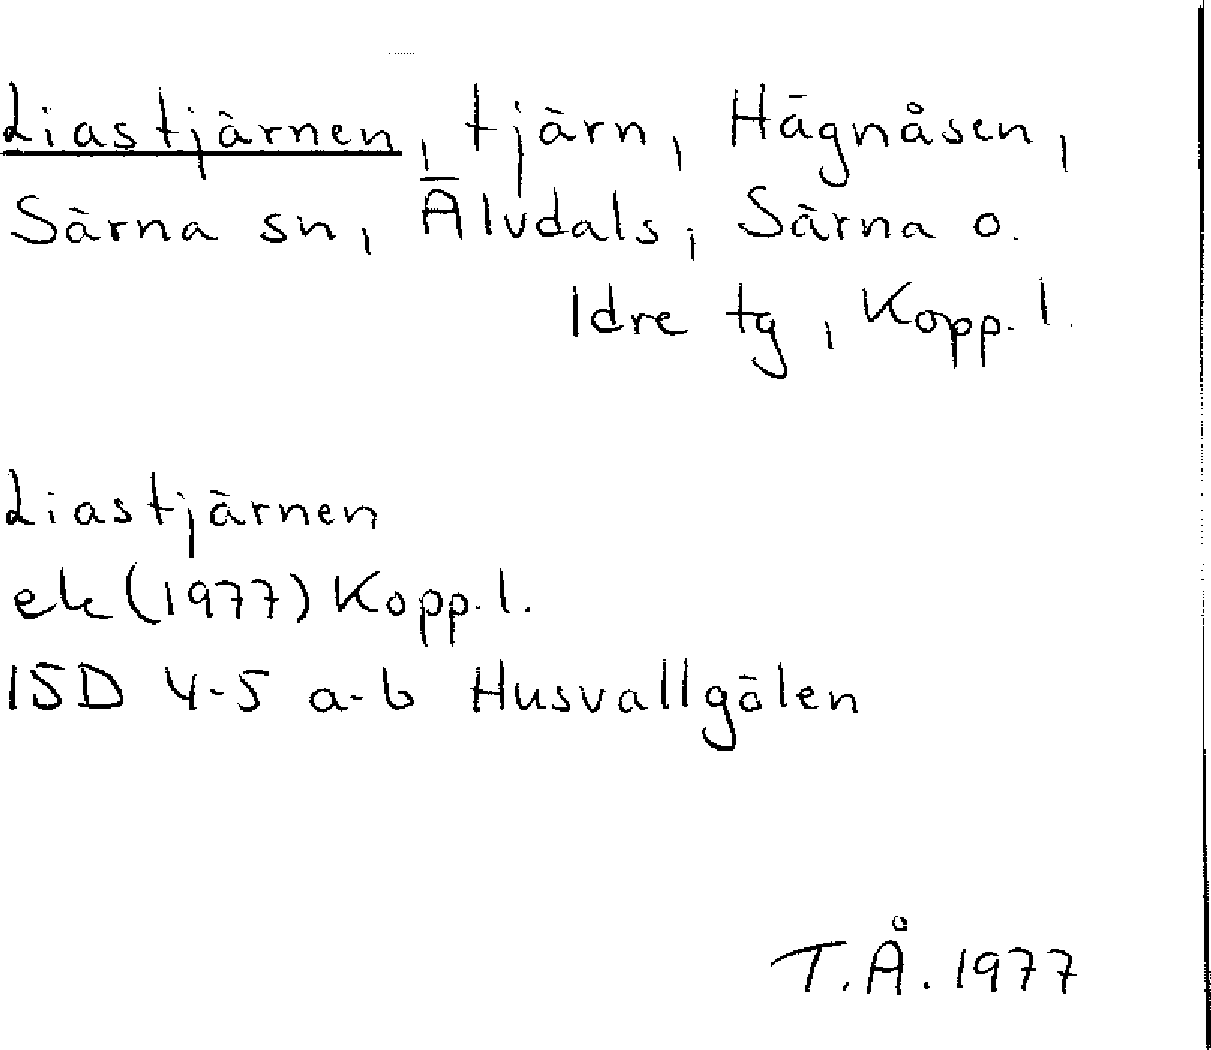 Liastjärnen, tjärn, Hägnåsen,
Särna sn, Älvdals, Särna o.
Idre tg, Kopp. l.
Liastjärnen
ek (1977) Kopp. l.
15D 4-5 a-b Husvallgölen
T.Å. 1977